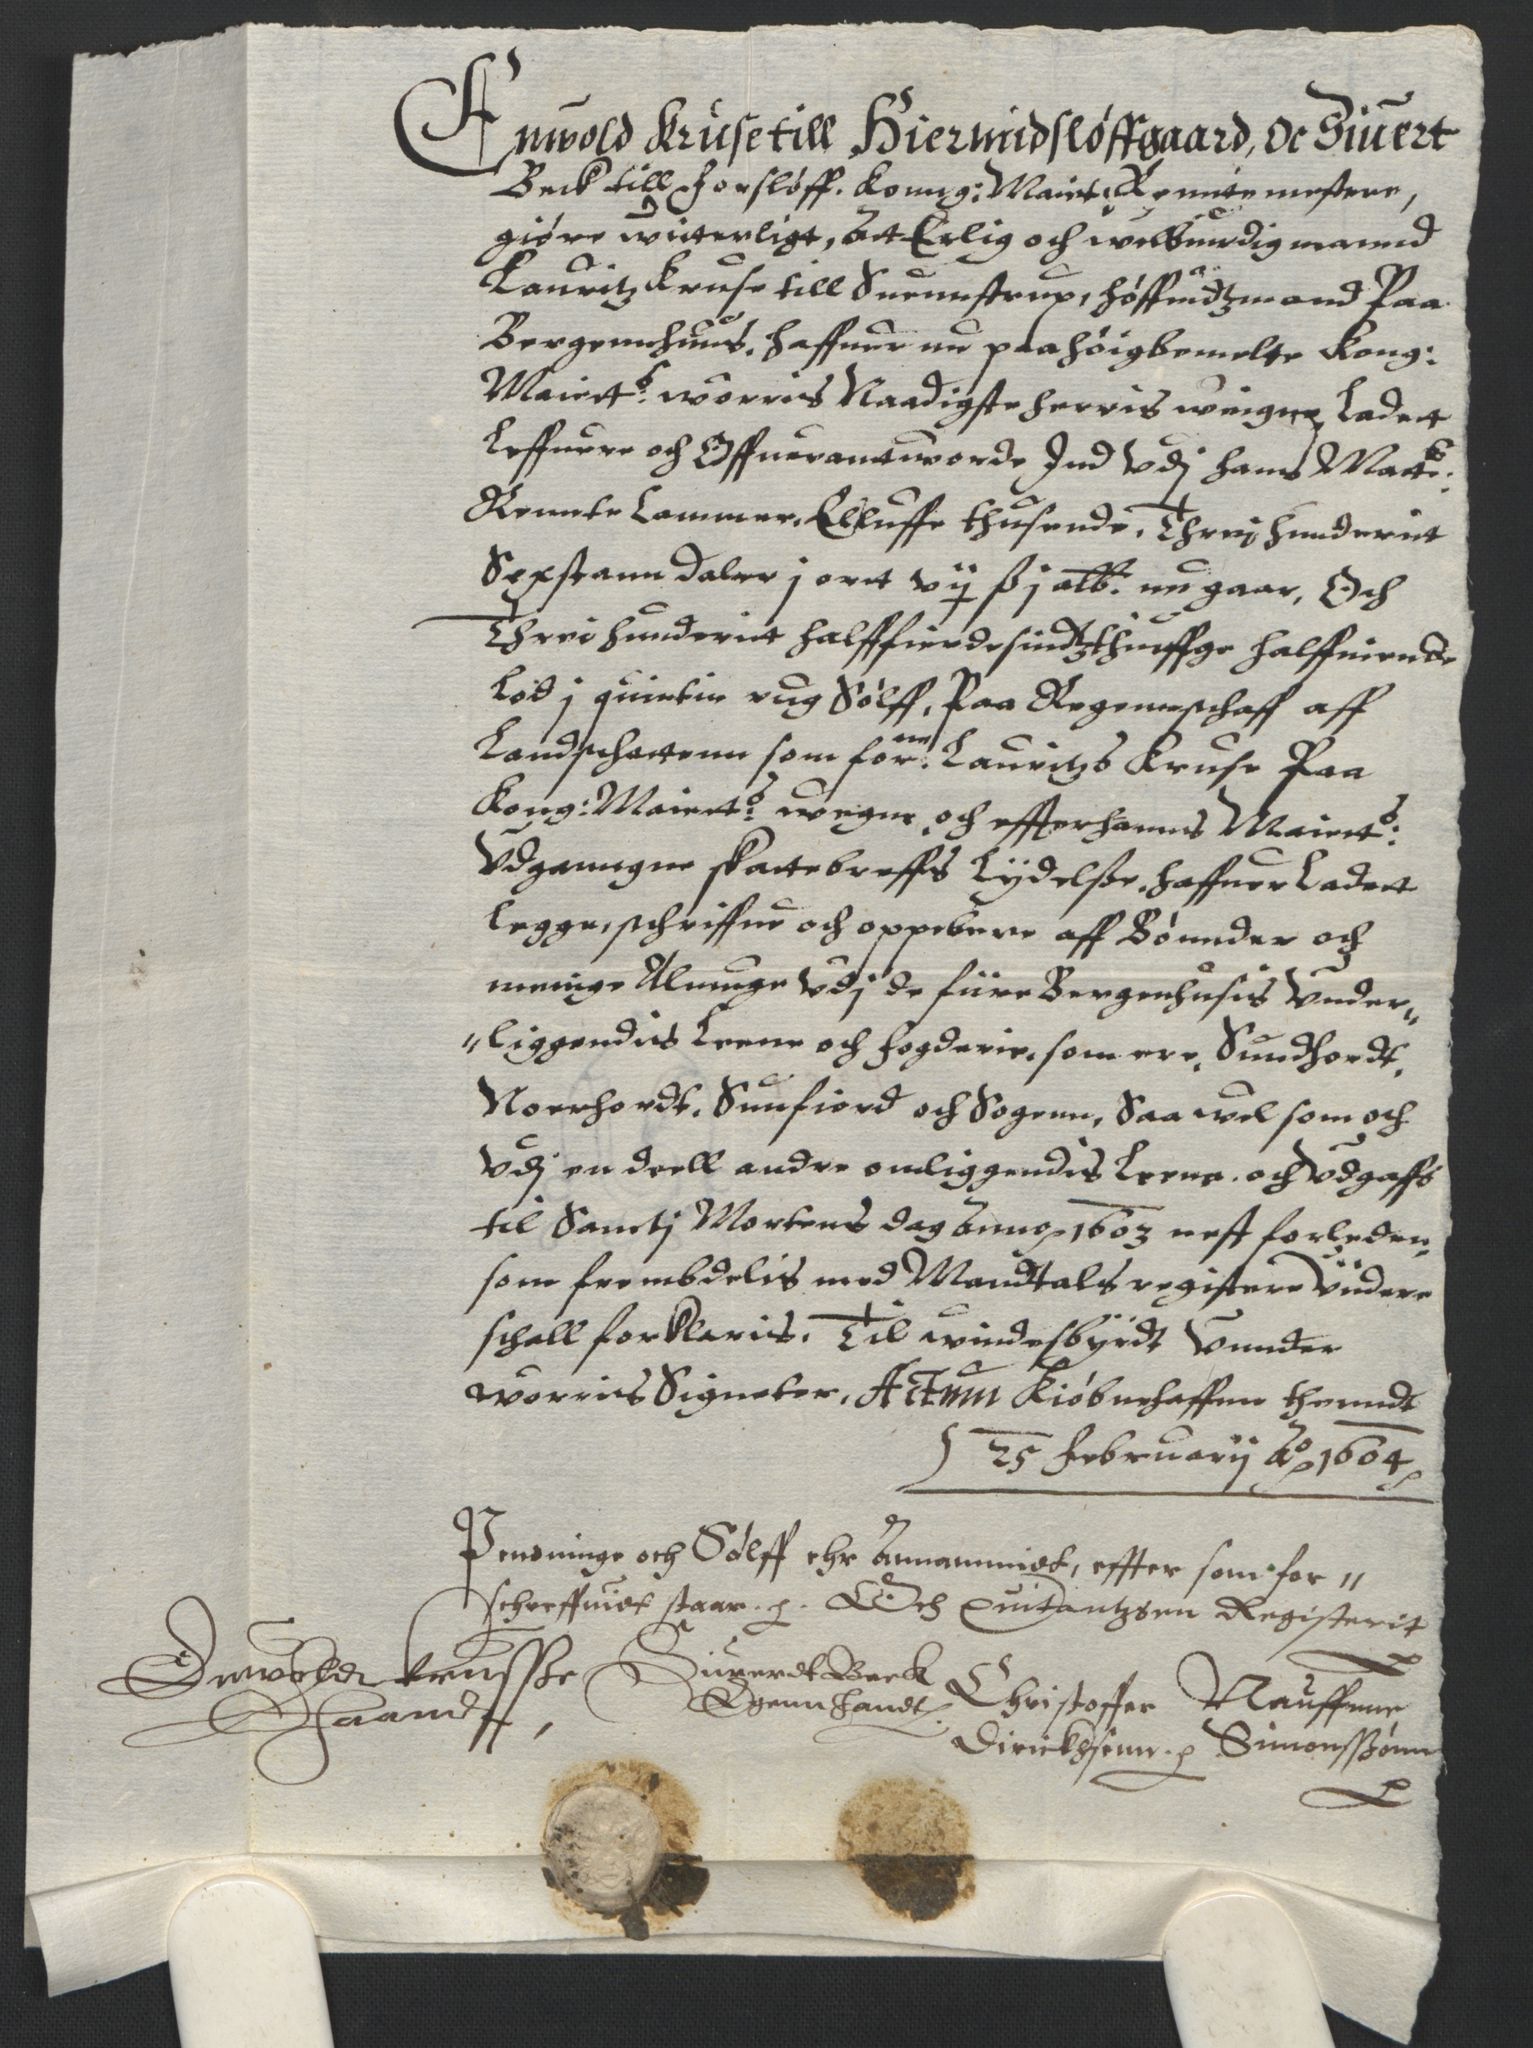 Enwold Krüse till Hiermidsløffgaard, Oc Siuert
Beck till Forsløff. Konng: Maiet: Rennte mestere,
giøre witterligt, att Erlig och welbiurdig mannd
Lauritz Kruse till Suennstrup, høffuidtzmand Paa
Bergennhuus, haffuer nu paa høigbemelte Kong:
Maiettˢ: worris Naadigste herris weigne, Ladett
Leffuere och Offuerantworde Ind vdj hans Mattˢ:
Rennte Cammer, Elluffe thusende, Threj hunderit
Sexstann daler j ort vij ß j alb: nu gaar, Och
Threi hunderit halffierdesindtzthiuffge halffniende
Lod j quintin rug Sølff, Paa Regennschaff aff
Landschattenn som forⁿᵉ: Lauritzs Kruse Paa
Kong: Maiettˢ: wegne, och effter hanns Maiettˢ:
Vdganngne skattebreffs Lydelsse, haffuer Ladett
Legge, schriffue och oppebere aff Bønnder och
meninge Almuge vdj de fiire Bergenhusis Vnder„
„liggendis Leene och fogderie, som ere, Sundhordt,
Noerhordt, Sunfiord och Sogenn, Saa wel som och
vdj en deell andre omliggendis Leene, och vdgaffs
til Sancti Mortens dag Anno 1603 nest forleden,
som frembdelis med Mandtals registere videre
schall forklaris. Til windesbyrdt vnnder
worris Signeter, Actum Kiøbnehaffnn thenndt
25 Februarij Aº 1604
Pendninge och Sølff ehr Annammidt, effter som for„
schreffuidt staar. Och Quitantzsen Registerit
Enwoldt krussße Siuerdt Beck Christoffer Nauffnne
Haandt, Egenn handt. Dirickhsenn. Simonssßønn